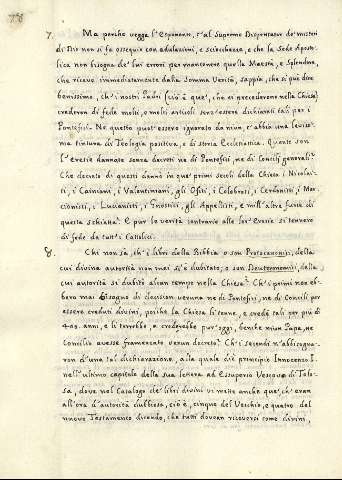 7. Ma perche vegga l'Esponente, ch'al Supremo Dispensator de' misterj
di Dio non si fa ossequio con adulazioni, e sciocchezze, e che la Sede Aposto-
lica non bisogna de' lui errori per mantenere quella Maestà, e Splendore,
che riceve immediatamente dalla Somma Verità, sappia, che si può dire
benissimo, ch'i nostri Padri (cioè a que', che ci precederono nella Chiesa)
crederon di fede molti, e molti articoli senz'essere dichiarati tali per i
Pontefici. Ne questo puot'essere ignorato da niun, ch'abbia una levissi-
ma tintura di Teologia positiva, e di storia Ecclesiastica. Quante son
l'eresie dannate senza decreti ne di Pontefici, ne di Concilj generali?
Che decreto di questi danno in que' primi secoli della Chiesa i Nicolai-
ti, i Cainiani, i Valentiniani, gli Ofiti, i Colobrati, i Cerdoniti, i Mar-
cionisti, i Lucianisti, i Gnostici, gli Appelliti, e mill'altre furie di
questa schiatta? E pur le verità contrarie alle lor'Eresie si tennero
di fede da tutt'i Cattolici.
8. Chi non sà, ch'i libri della Bibbia o son Protocanonici, della
cui divina autorità non mai si è dubitato, o son Deuteronomii, della
cui autorità si dubitò alcun tempo nella Chiesa? Ch'i primi non eb-
bero mai bisogno di decision veruna ne di Pontefici, ne di Concilj per
essere creduti divini, poiche la Chiesa li tenne, e crede tali per più di
400. anni, e li terrebbe, e crederebbe pur'oggi, benche niun Papa, ne
Concilio avesse frammezzato verun decreto? Ch'i secondi n'abbisogna-
ron d'una tal dichiarazione, alla quale diè principio Innocenzo I.
nell'ultimo capitolo della sua lettera ad Essuperio Vescovo di Tolo-
sa, dove nel Catalogo de' libri divini vi mette anche que', ch'eran
all'ora d'autorità dubbiosa, cioè, cinque del Vecchio, e quattro del
nuovo Testamento dicendo, che tutti dovean riceversi come divini,